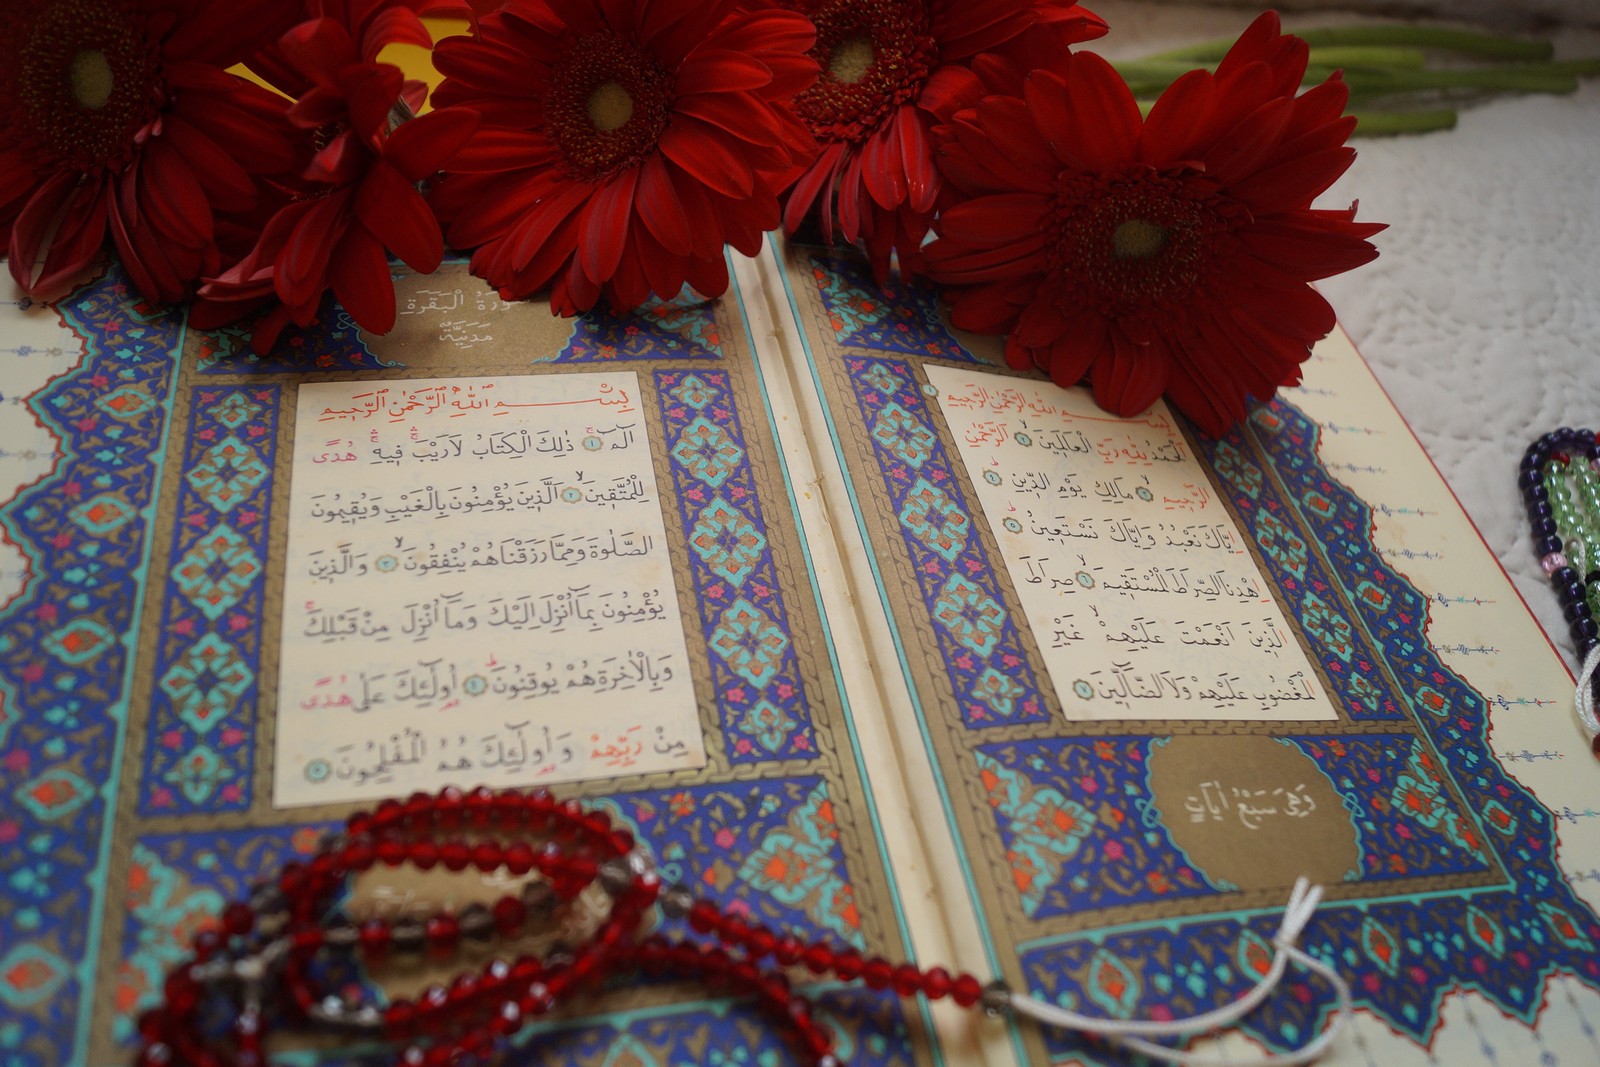 بِسْمِ اللّٰهِ الرَّحْمٰنِ الرَّحِيمِ
اَلْحَمْدُ لِلّٰهِ رَبِّ الْعَالَمِينَ ﴿٢﴾ اَلرَّحْمٰنِ
الرَّحِيمِ ﴿٣﴾ مَالِكِ يَوْمِ الدِّينِ ﴿٤﴾
اِيَّاكَ نَعْبُدُ وَاِيَّاكَ نَسْتَعِينُ ﴿٥﴾
اِهْدِنَا الصِّرَاطَ الْمُسْتَقِيمَ ﴿٦﴾ صِرَاطَ
الَّذِينَ اَنْعَمْتَ عَلَيْهِمْ غَيْرِ
الْمَغْضُوبِ عَلَيْهِمْ وَلَا الضَّالِّينَ ﴿٧﴾
وَهِيَ سَبْعُ اٰيَاتٍ
سُورَةُ الْبَقَرَةِ
مَدَنِيَّةٌ
بِسْمِ اللّٰهِ الرَّحْمٰنِ الرَّحِيمِ
الٓمٓ ﴿١﴾ ذٰلِكَ الْكِتَابُ لَا رَيْبَ فِيهِ هُدًى
لِلْمُتَّقِينَ ﴿٢﴾ اَلَّذِينَ يُؤْمِنُونَ بِالْغَيْبِ وَيُقِيمُونَ
الصَّلٰوةَ وَمِمَّا رَزَقْنَاهُمْ يُنْفِقُونَ ﴿٣﴾ وَالَّذِينَ
يُؤْمِنُونَ بِمَٓا اُنْزِلَ اِلَيْكَ وَمَٓا اُنْزِلَ مِنْ قَبْلِكَ
وَبِالْاٰخِرَةِ هُمْ يُوقِنُونَ ﴿٤﴾ اُولٰٓئِكَ عَلٰى هُدًى
مِنْ رَبِّهِمْ وَاُولٰٓئِكَ هُمُ الْمُفْلِحُونَ ﴿٥﴾